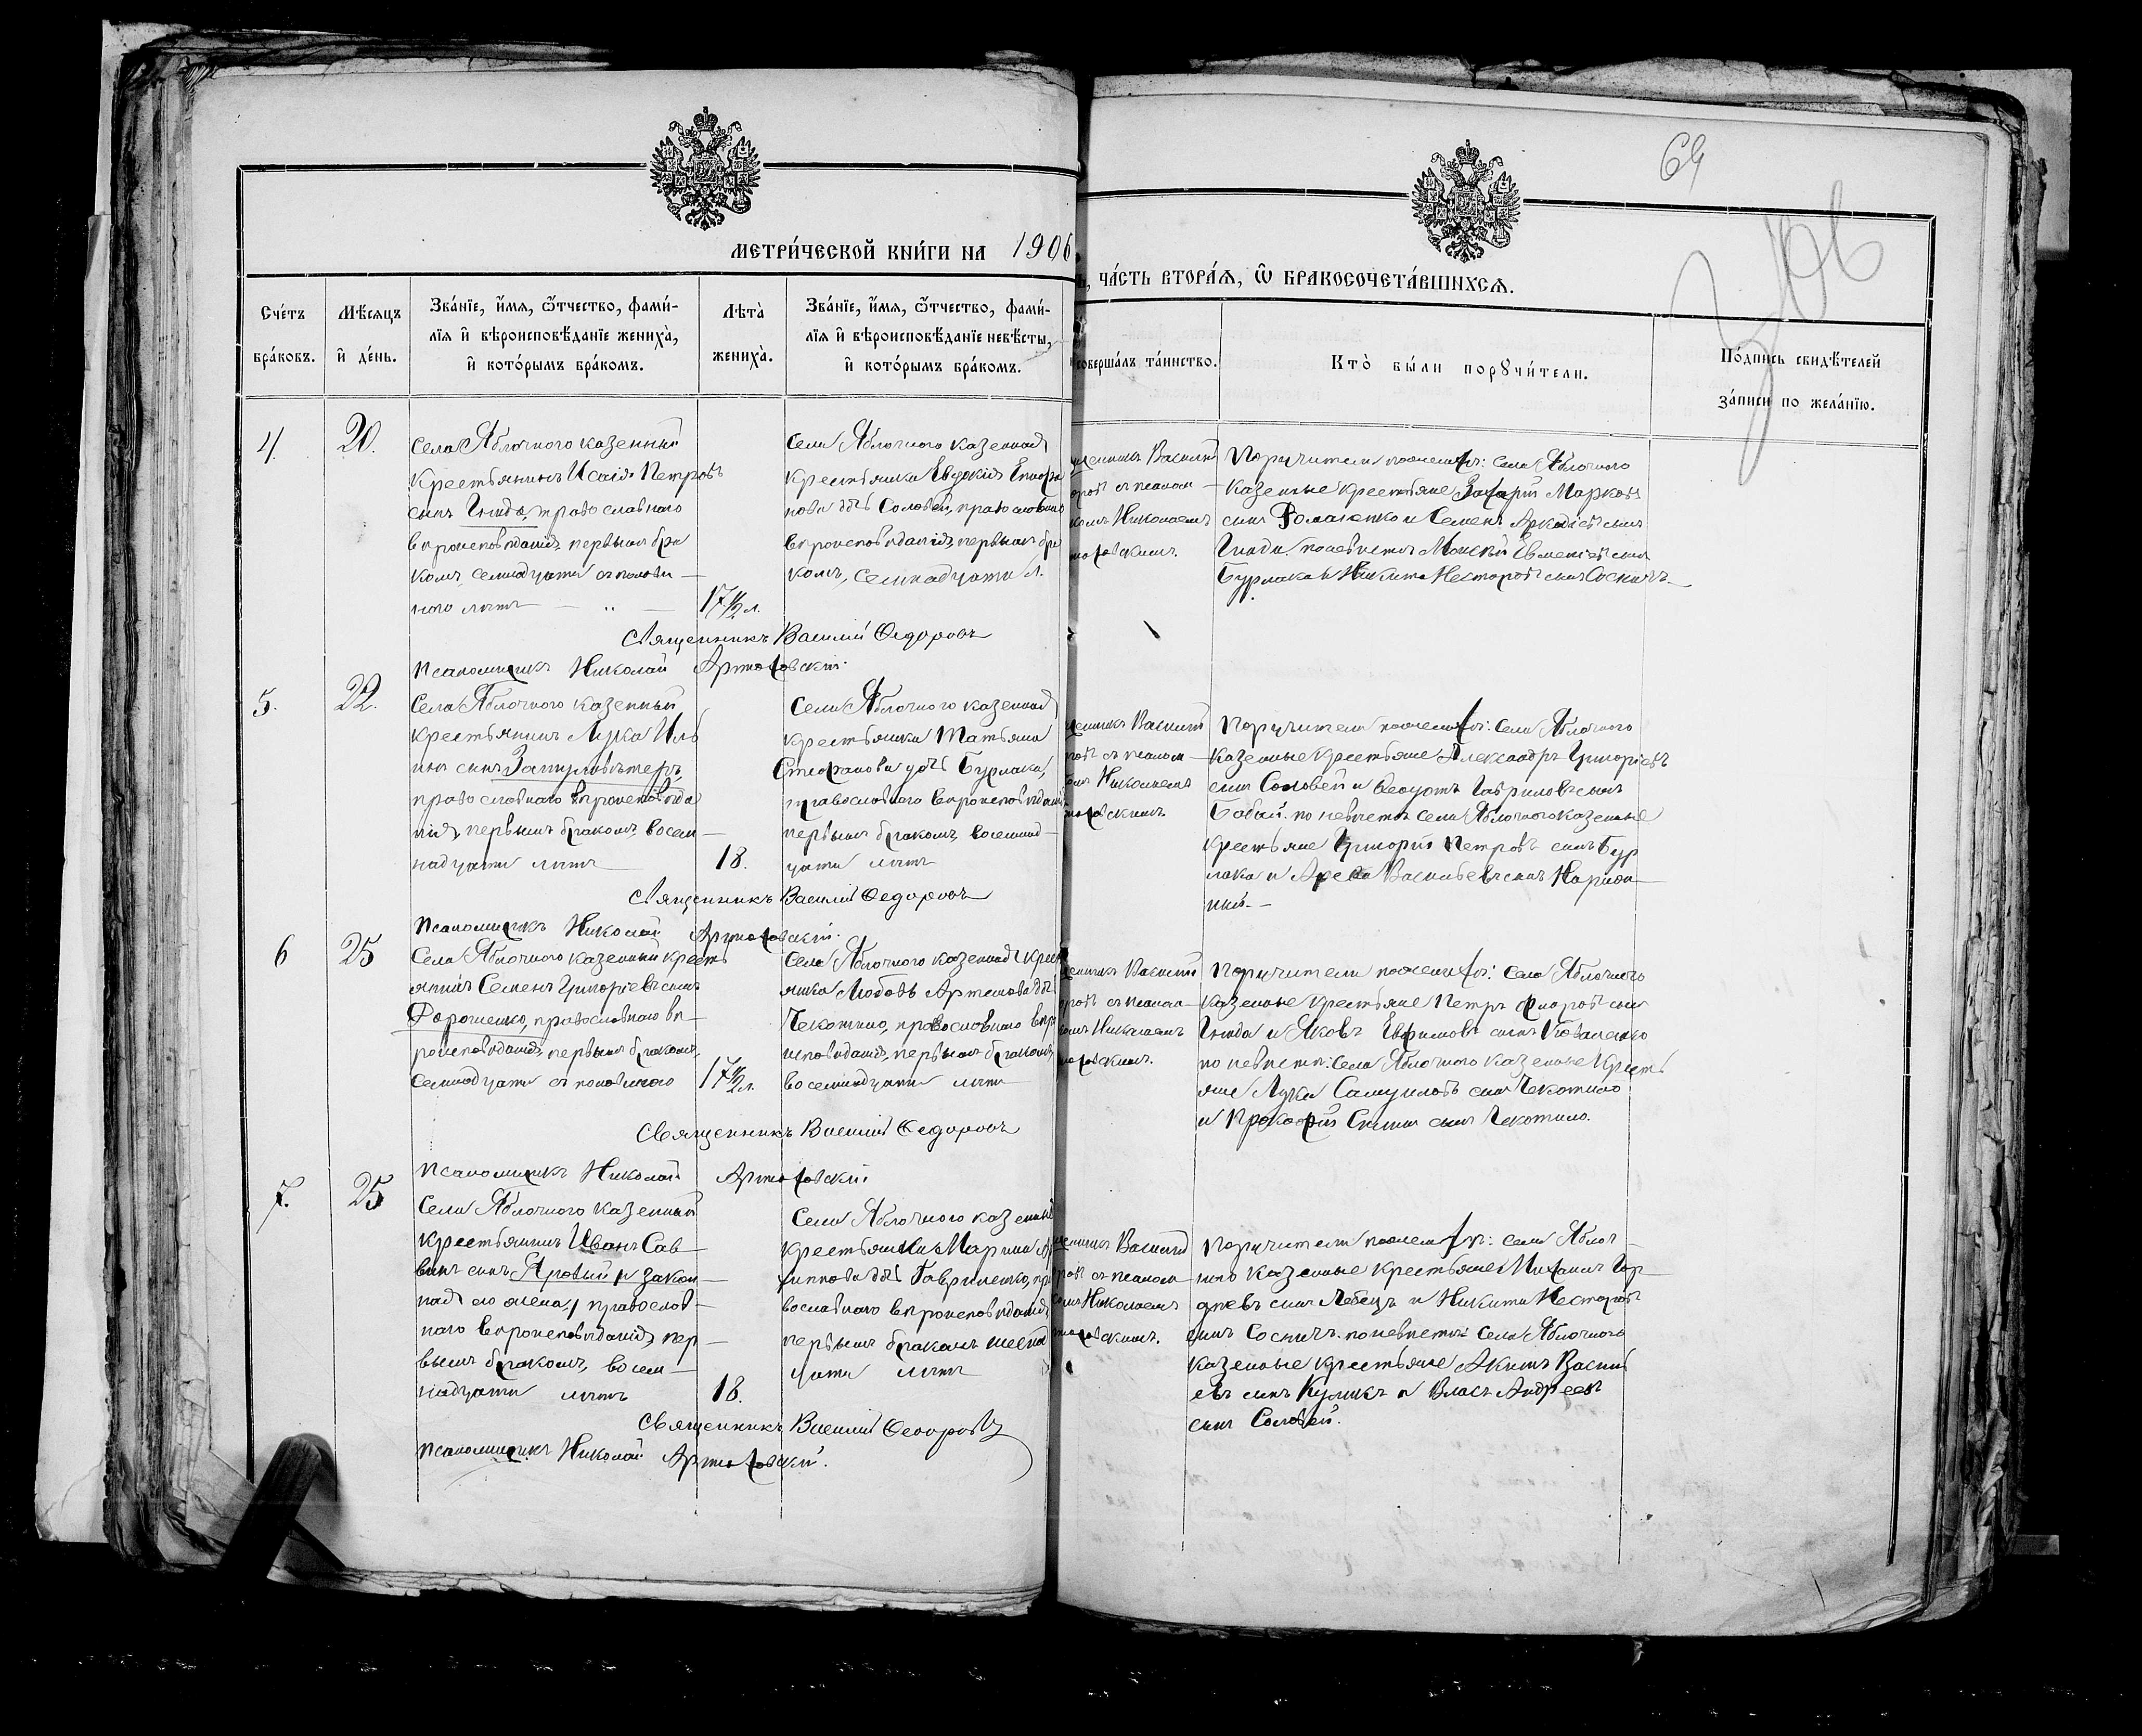 64
МЕТРИ́ЧЕСКОЙ КНИ́ГИ НА 1906
, ЧА́СТЬ ВТОРА́Ѧ, Ѽ БРАКОСОЧЕТА́ВШИХСѦ.
Сче́тъ бра́ковъ.
Мѣ́сѧцъ и҆ де́нь.
Зва́нїе, и҆́мѧ, ѻ҆́тчество, фами́-
лїѧ и҆ вѣроисповѣ́данїе жениха̀,
и҆ кото́рымъ бра́комъ.
Лѣта̀
жениха̀.
Зва́нїе, и҆́мѧ, ѻ҆́тчество, фами́-
лїѧ и҆ вѣроисповѣ́данїе невѣ́сты,
и҆ кото́рымъ бра́комъ.
соверша́лъ та́инство.
Кто̀ бы́ли порꙋчи́тели.
По́дпись свидѣ́телей
за́писи по жела́нїю.
4.
20.
Села Яблочного казенный
крестьянинъ Исаія Петровъ
сынъ Гнида, православнаго
вѣроисповѣданія, первымъ бра
комъ, семнадцати съ полови-
ною лѣтъ
17½ л.
Села Яблочного казенная
крестьянка Евдокія
нова дчь Соловей, православнаго
вѣроисповѣданія, первымъ бра
комъ, семнадцати л.
щенникъ Василій
оровъ съ псалом-
комъ Николаемъ
товскимъ.
Поручители по женихѣ: села Яблочного
казенные крестьяне Захарій Марковъ
сынъ Романенко и Семенъ Аркадіевъ сынъ
Гнида. по невѣстѣ Евменіевъ сынъ
Бурлака и Никита Несторовъ сынъ Соснинъ
Священникъ Василій Ѳедоровъ
Псаломщикъ Николай
5.
22.
Села Яблочного казенный
крестьянинъ Лука Иль
инъ сынъ
православнаго вѣроисповѣда
нія, первымъ бракомъ, восем-
надцати лѣтъ
18.
Села Яблочного казенная
крестьянка Татьяна
Стефанова дчь Бурлака,
православнаго вѣроисповѣданія
первымъ бракомъ, восемнад-
цати лѣтъ
щенникъ Василій
ровъ съ псалом-
комъ Николаемъ
товскимъ.
Поручители по женихѣ: села Яблочного
казенные крестьяне Александръ Григорьевъ
сынъ Соловей и Ѳедотъ Гавриловъ сынъ
Бабай. по невѣстѣ села Яблочного казенные
крестьяне Григорій Петровъ сынъ Бур
лака и Васильевъ сынъ
ный.-
Священникъ Василій Ѳедоровъ
Псаломщикъ Николай
6
25
Села Яблочного казенный кресть
янинъ Семенъ Григорьевъ сынъ
Дорошенко, православнаго вѣ-
роисповѣданія, первымъ бракомъ,
семнадцати съ половиною
17½ л.
Села Яблочного казенная крест
янка Любовь Артемова дчь
Чекотило, православнаго вѣро
исповѣданія, первымъ бракомъ,
восемнадцати лѣтъ
щенникъ Василій
оровъ съ псалом-
комъ Николаемъ
товскимъ.
Поручители по женихѣ: села Яблочного
казенные крестьяне Петръ сынъ
Гнида и Яковъ Евфимовъ сынъ Коваленко
по невѣстѣ: села Яблочного казенные кресть
яне Лука Самуиловъ сынъ Чекотило
и Прокофій сынъ Чекотило.
Священникъ Василій Ѳедоровъ
Псаломщикъ Николай
7.
25
Села Яблочного казенный
крестьянинъ Иванъ Сав-
винъ сынъ Яровый
православ-
наго вѣроисповѣданія, пер-
вымъ бракомъ, восем-
надцати лѣтъ
18.
Села Яблочного казенный
крестьянки Марина
типпова дчь Гавриленко, пра
вославнаго вѣроисповѣданія
первымъ бракомъ шестнад
цати лѣтъ
щенникъ Василій
ровъ съ псалом-
комъ Николаемъ
товскимъ.
Поручители по женихѣ: села Яблоч-
ного казенные крестьяне Михаилъ Гор-
дѣевъ сынъ Лебедь и Никита Несторовъ
сынъ Соснинъ. по невѣстѣ села Яблочного
казенные крестьяне Акимъ Василь
евъ сынъ Куликъ и Власъ Андреевъ
сынъ Соловей.
Священникъ Василій Ѳедоровъ
Псаломщикъ Николай